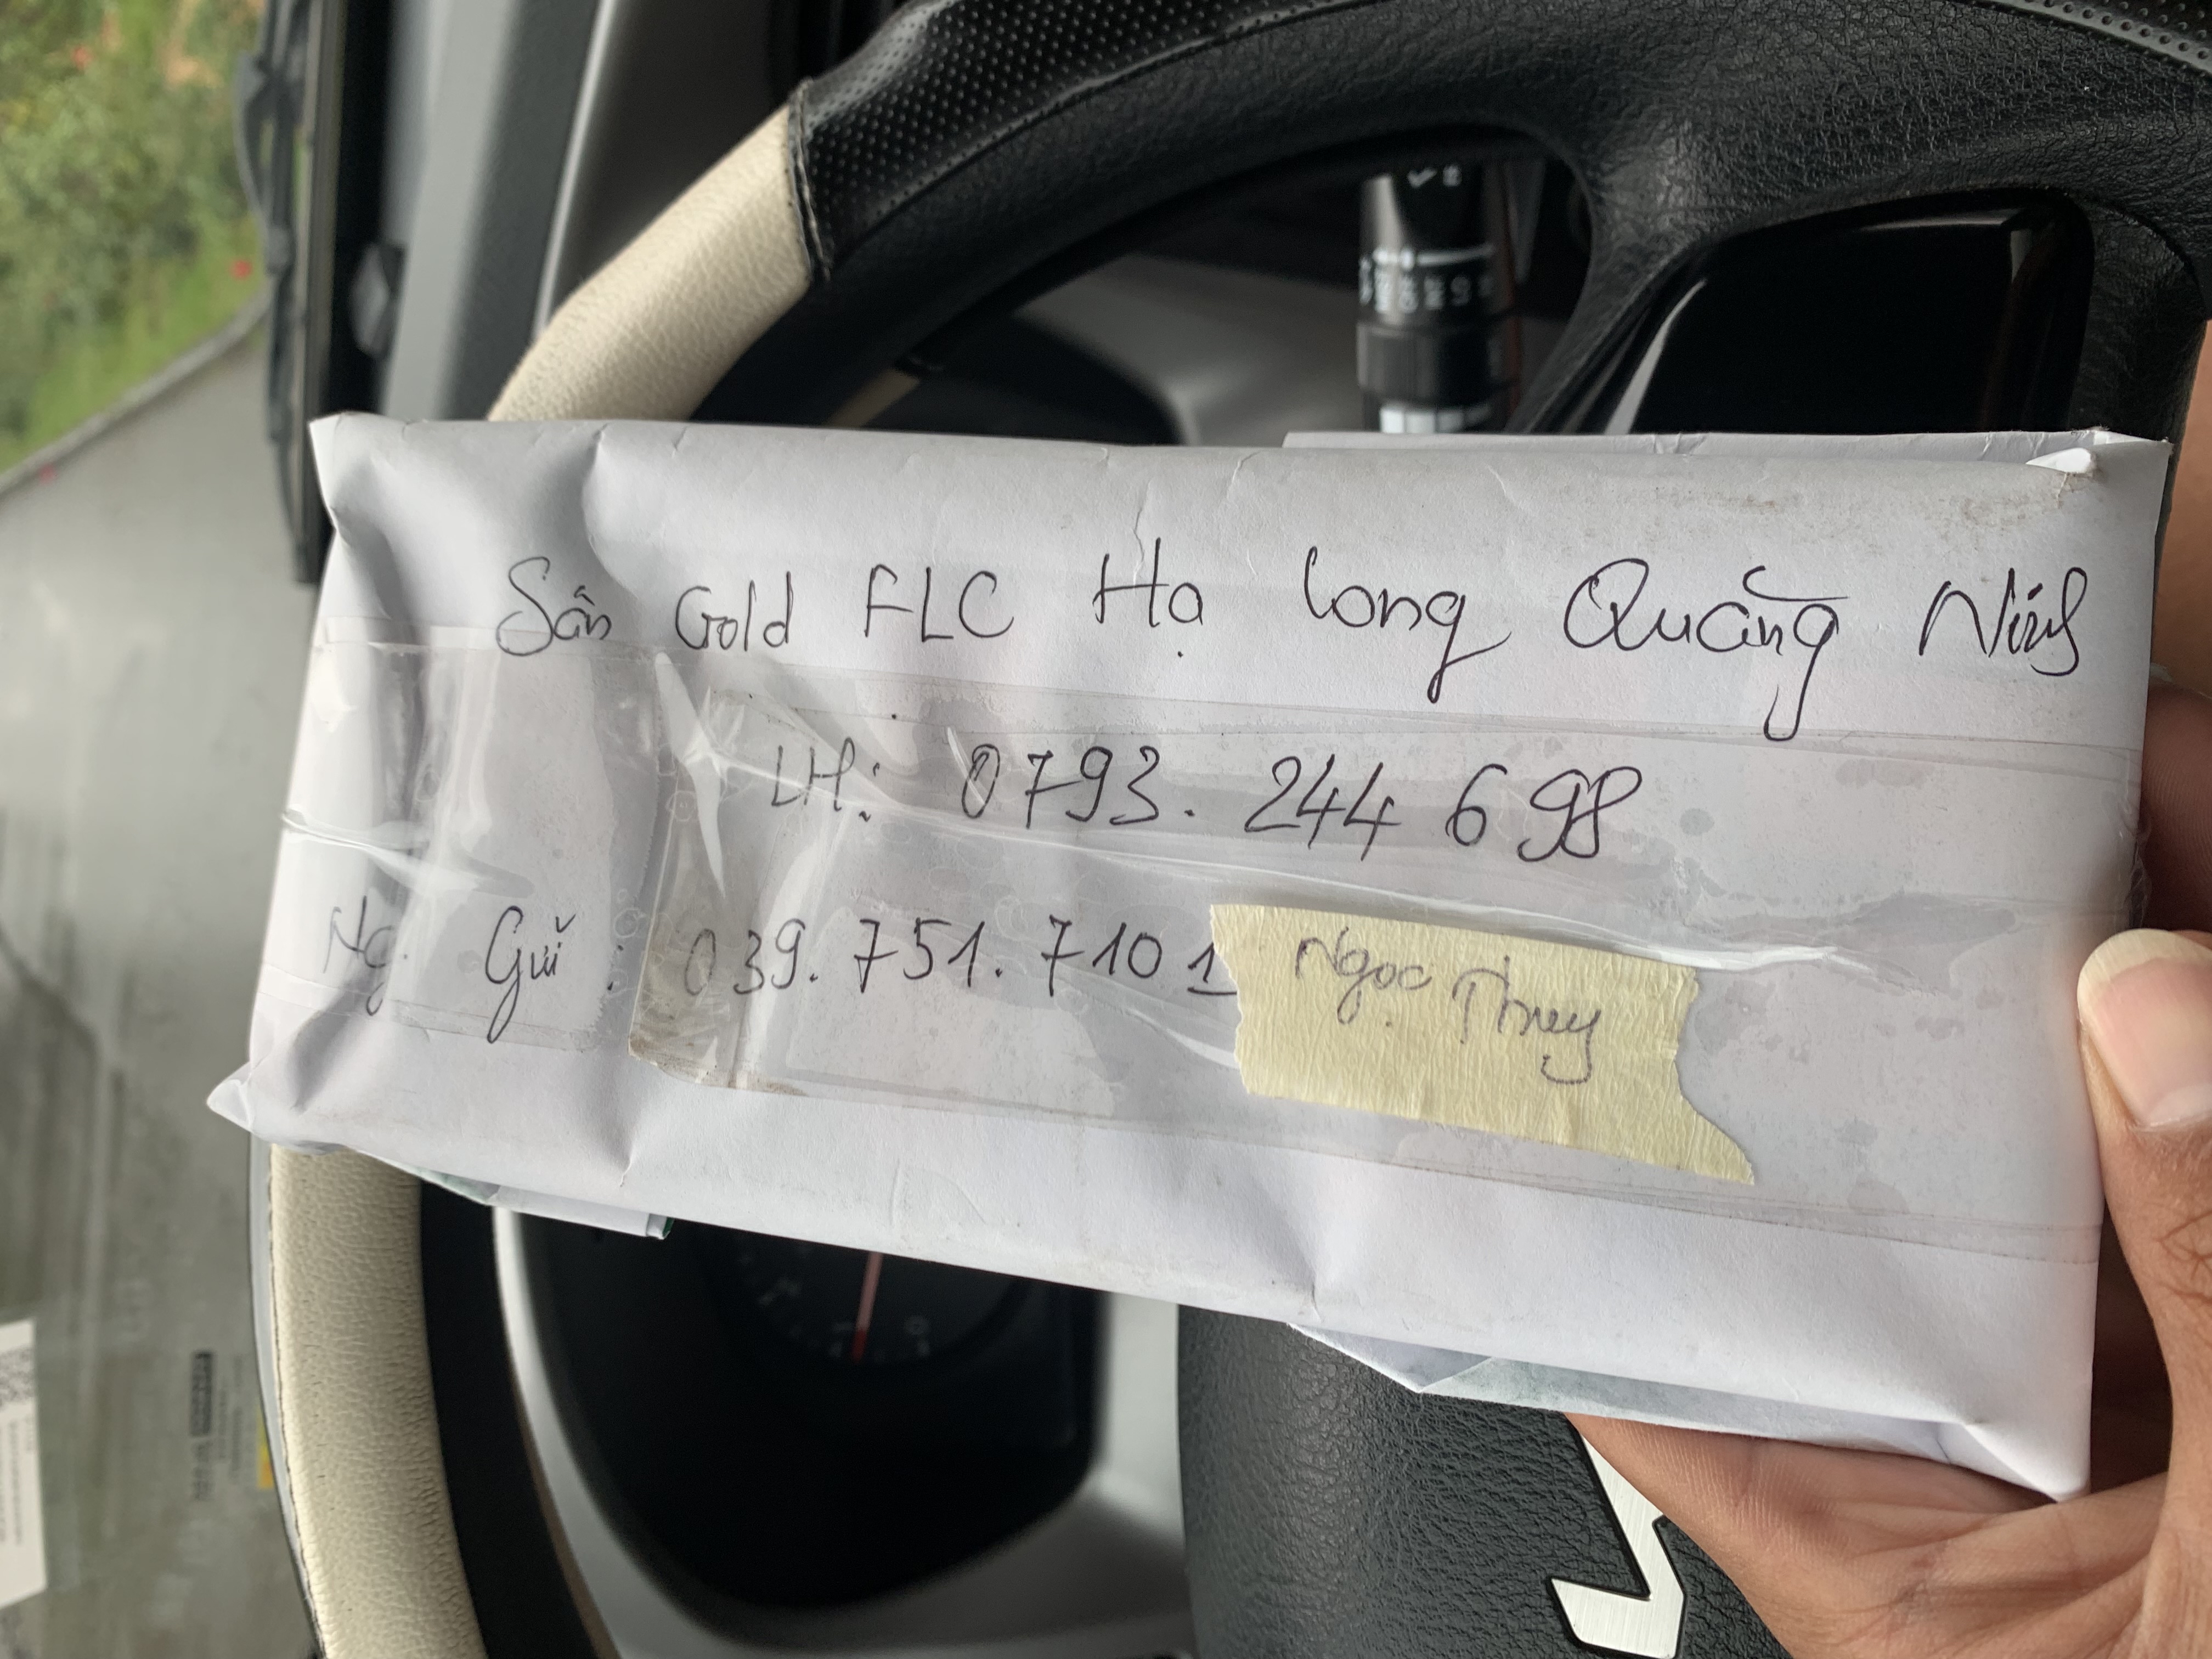 Sân Gold FLC Hạ Long Quảng Ninh
LH: 0793. 244 698
Ng. Gửi : 039. 751. 7101
Ngọc Thuy